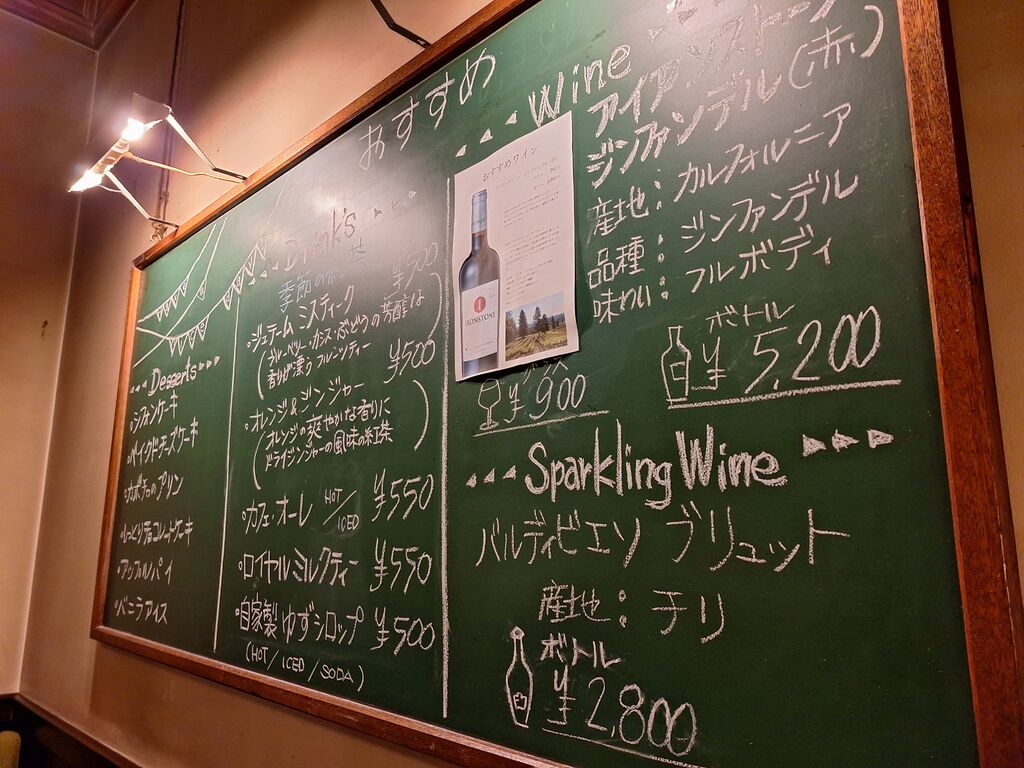 おすすめ
Desserts
・シフォンケーキ
・ベイクドチーズケーキ
・カボチャのプリン
・しっとりチョコレートケーキ
・アップルパイ
・バニラアイス
Drink's
季節の紅茶
・ジュテーム ミスティーク ¥500
(ブルーベリー・カシス・ぶどうの芳醇な
香りが漂うフルーツティー)
・オレンジ&ジンジャー ¥500
(オレンジの爽やかな香りに
ドライジンジャーの風味の紅茶)
・カフェ・オーレ HOT/ICED ¥550
・ロイヤルミルクティー ¥550
・自家製ゆずシロップ ¥500
(HOT/ICED/SODA)
Wine
アイアンストーン
ジンファンデル(赤)
産地:カルフォルニア
品種:ジンファンデル
味わい:フルボディ
おすすめワイン
IRONSTONE
グラス
¥900
ボトル
¥5,200
Sparkling Wine
バルディビエソ ブリュット
産地:チリ
ボトル
¥2,800